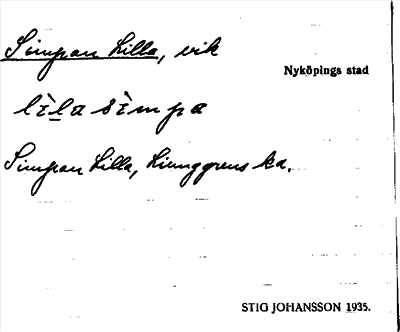 Simpan Lilla, vik
Nyköpings stad
lìla sìmpa
Simpan Lilla, Ljunggrens ka.
STIG JOHANSSON 1935.